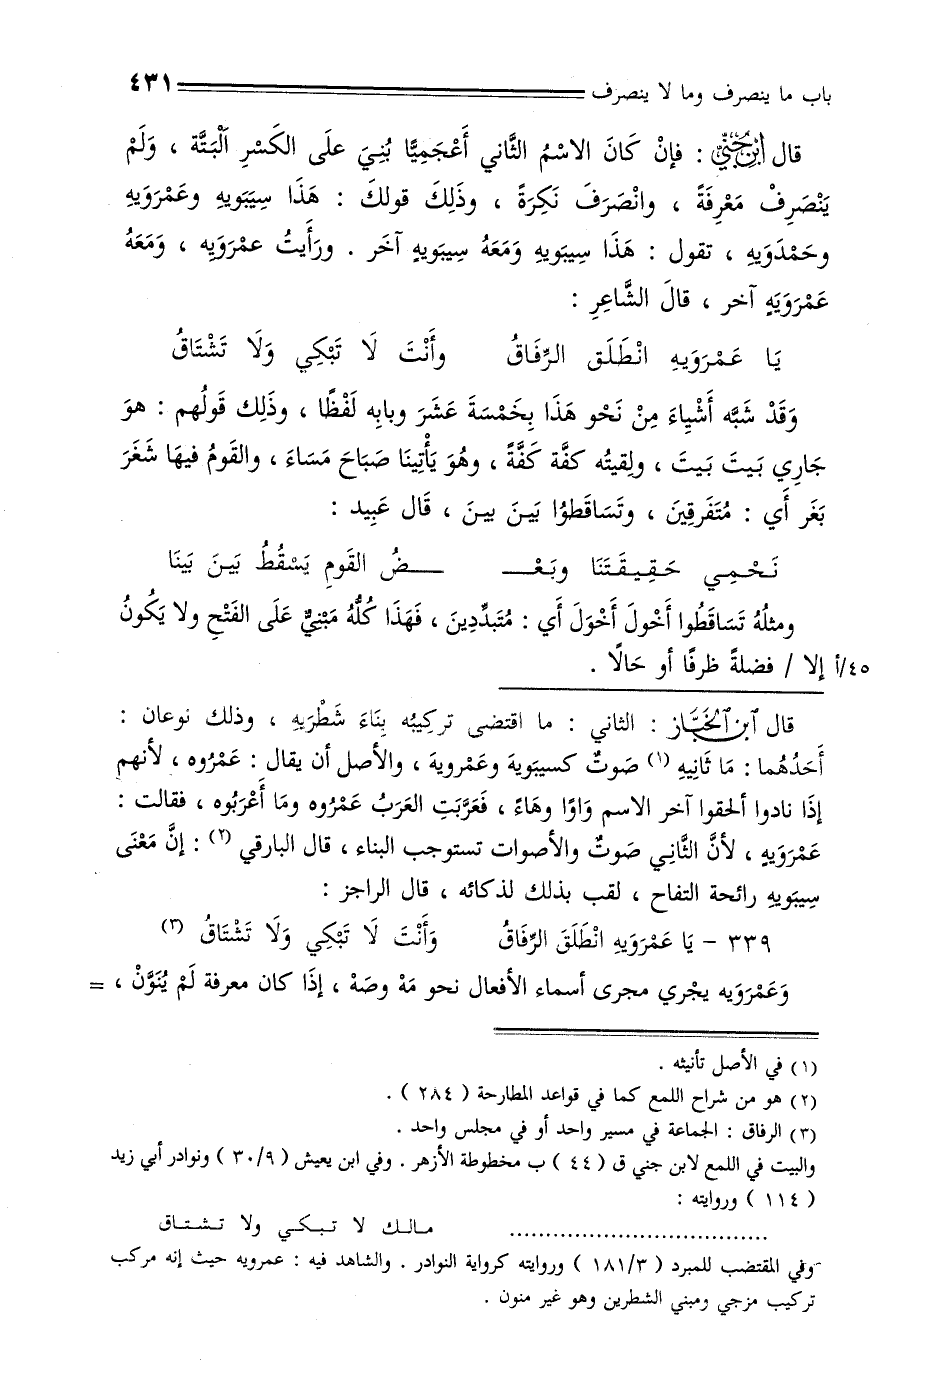 باب ما ينصرف وما لا ينصرف ٤٣١
قال ابن جني : فإنْ كَانَ الاسْمُ الثَّاني أَعْجَمِيًّا بُنِيَ علَى الكَسْرِ ٱلْبَتَّة ، وَلَمْ
يَنْصَرِفْ مَعْرِفَةً ، وانْصَرَفَ نَكِرَةً ، وَذَلِكَ قولكَ : هَذَا سِيبَويهِ وعَمْرَوَيهِ
وحَمْدَوَيهِ ، تقول : هَذَا سِيبَويهِ وَمَعَهُ سِيبَويهٍ آخَر . ورَأَيتُ عمْرَوَيِه ، وَمَعَهُ
عَمْرَوَيهٍ آخر ، قالَ الشَّاعِرِ :
يَا عَمْرَوَيهِ انْطَلَق الرِّفَاقُ وأَنْتَ لَا تَبْكِي وَلَا تَشْتَاقُ
وَقَدْ شبَّه أَشْيِاءَ مِنْ نَحْوِ هَذَا بِخَمْسَةَ عَشَرَ وبابِه لَفْظًا ، وذَلِك قَولُهم : هوَ
جَارِي بَيتَ بَيتَ ، ولِقيتُه كفَّة كَفَّةً ، وهُوَ يَأْتِينَا صَبَاحَ مَسَاءَ ، والقَومُ فيهَا شغَرَ
بَغَر أَي : مُتَفَرقِينَ ، وتَسَاقَطوُا بَينَ بينَ ، قَال عَبِيد :
نَحْمِي حَقِيقَتَنَا وبَعْــ ــضُ القَومِ يَسْقُطُ بَينَ بَينَا
ومثلُهُ تَسَاقَطُوا أَخْولَ أَخْوَلَ أَي : مُتَبَدِّدِينَ ، فَهَذَا كُلُّهُ مَبْنِيٌّ عَلَى الفَتْحِ ولا يَكُونُ
٤٥/أ إلا / فضلةً ظرفًا أو حَالًا .
قال ابن الخباز : الثاني : ما اقتضى تركيبُه بِنَاءَ شَطْرَيهِ ، وذلك نوعان :
أَحَدُهُما : مَا ثَانِيهِ (١) صَوتٌ كسيبَوية وعَمْروية ، والأصل أن يقال : عَمْرُوه ، لأنهم
إذَا نادوا ألحقوا آخر الاسم وَاوًا وهَاءً ، فَعَرَّبَتِ العَرَبُ عَمْرُوه ومَا أَعْرَبُوه ، فقالت :
عَمْرَوَيهِ ، لأنَّ الثَّانِي صَوتٌ والأصوات تستوجب البناء ، قال البارقي (٢) : إنَّ مَعْنَى
سِيبَويهِ رائحة التفاح ، لقب بذلك لذكائه ، قال الراجز :
٣٣٩ - يَا عَمْرَوَيهِ انْطَلَقَ الرِّفَاقُ وَأَنْتَ لَا تَبْكِي وَلَا تَشْتَاقُ (٣)
وَعَمْرَوَيه يجْرِي مجرى أسماء الأفعال نحو مَهْ وصَهْ ، إذَا كان معرفة لَمْ يُنَوَّنْ ، =
(١) في الأصل تأنيثه .
(٢) هو من شراح اللمع كما في قواعد المطارحة ( ٢٨٤ ) .
(٣) الرفاق : الجماعة في مسير واحد أو في مجلس واحد .
والبيت في اللمع لابن جني ق ( ٤٤ ) ب مخطوطة الأزهر . وفي ابن يعيش ( ٣٠/٩ ) ونوادر أبي زيد
( ١١٤ ) وروايته :
................................... مالك لا تبكي ولا تشتاق
وفي المقتضب للمبرد ( ١٨١/٣ ) وروايته كرواية النوادر . والشاهد فيه : عمرويه حيث إنه مركب
تركيب مزجي ومبني الشطرين وهو غير منون .